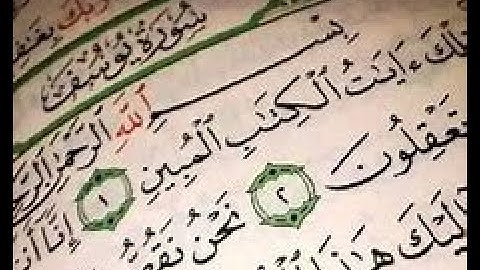 رَبُّكَ
سُورَةُ يُوسُفَ
بِسْمِ ٱللَّهِ ٱلرَّحْمَٰنِ
تِلْكَ ءَايَٰتُ ٱلْكِتَٰبِ ٱلْمُبِينِ ١ إِنَّا
تَعْقِلُونَ ٢ نَحْنُ نَقُصُّ
إِلَيْكَ هَٰذَا